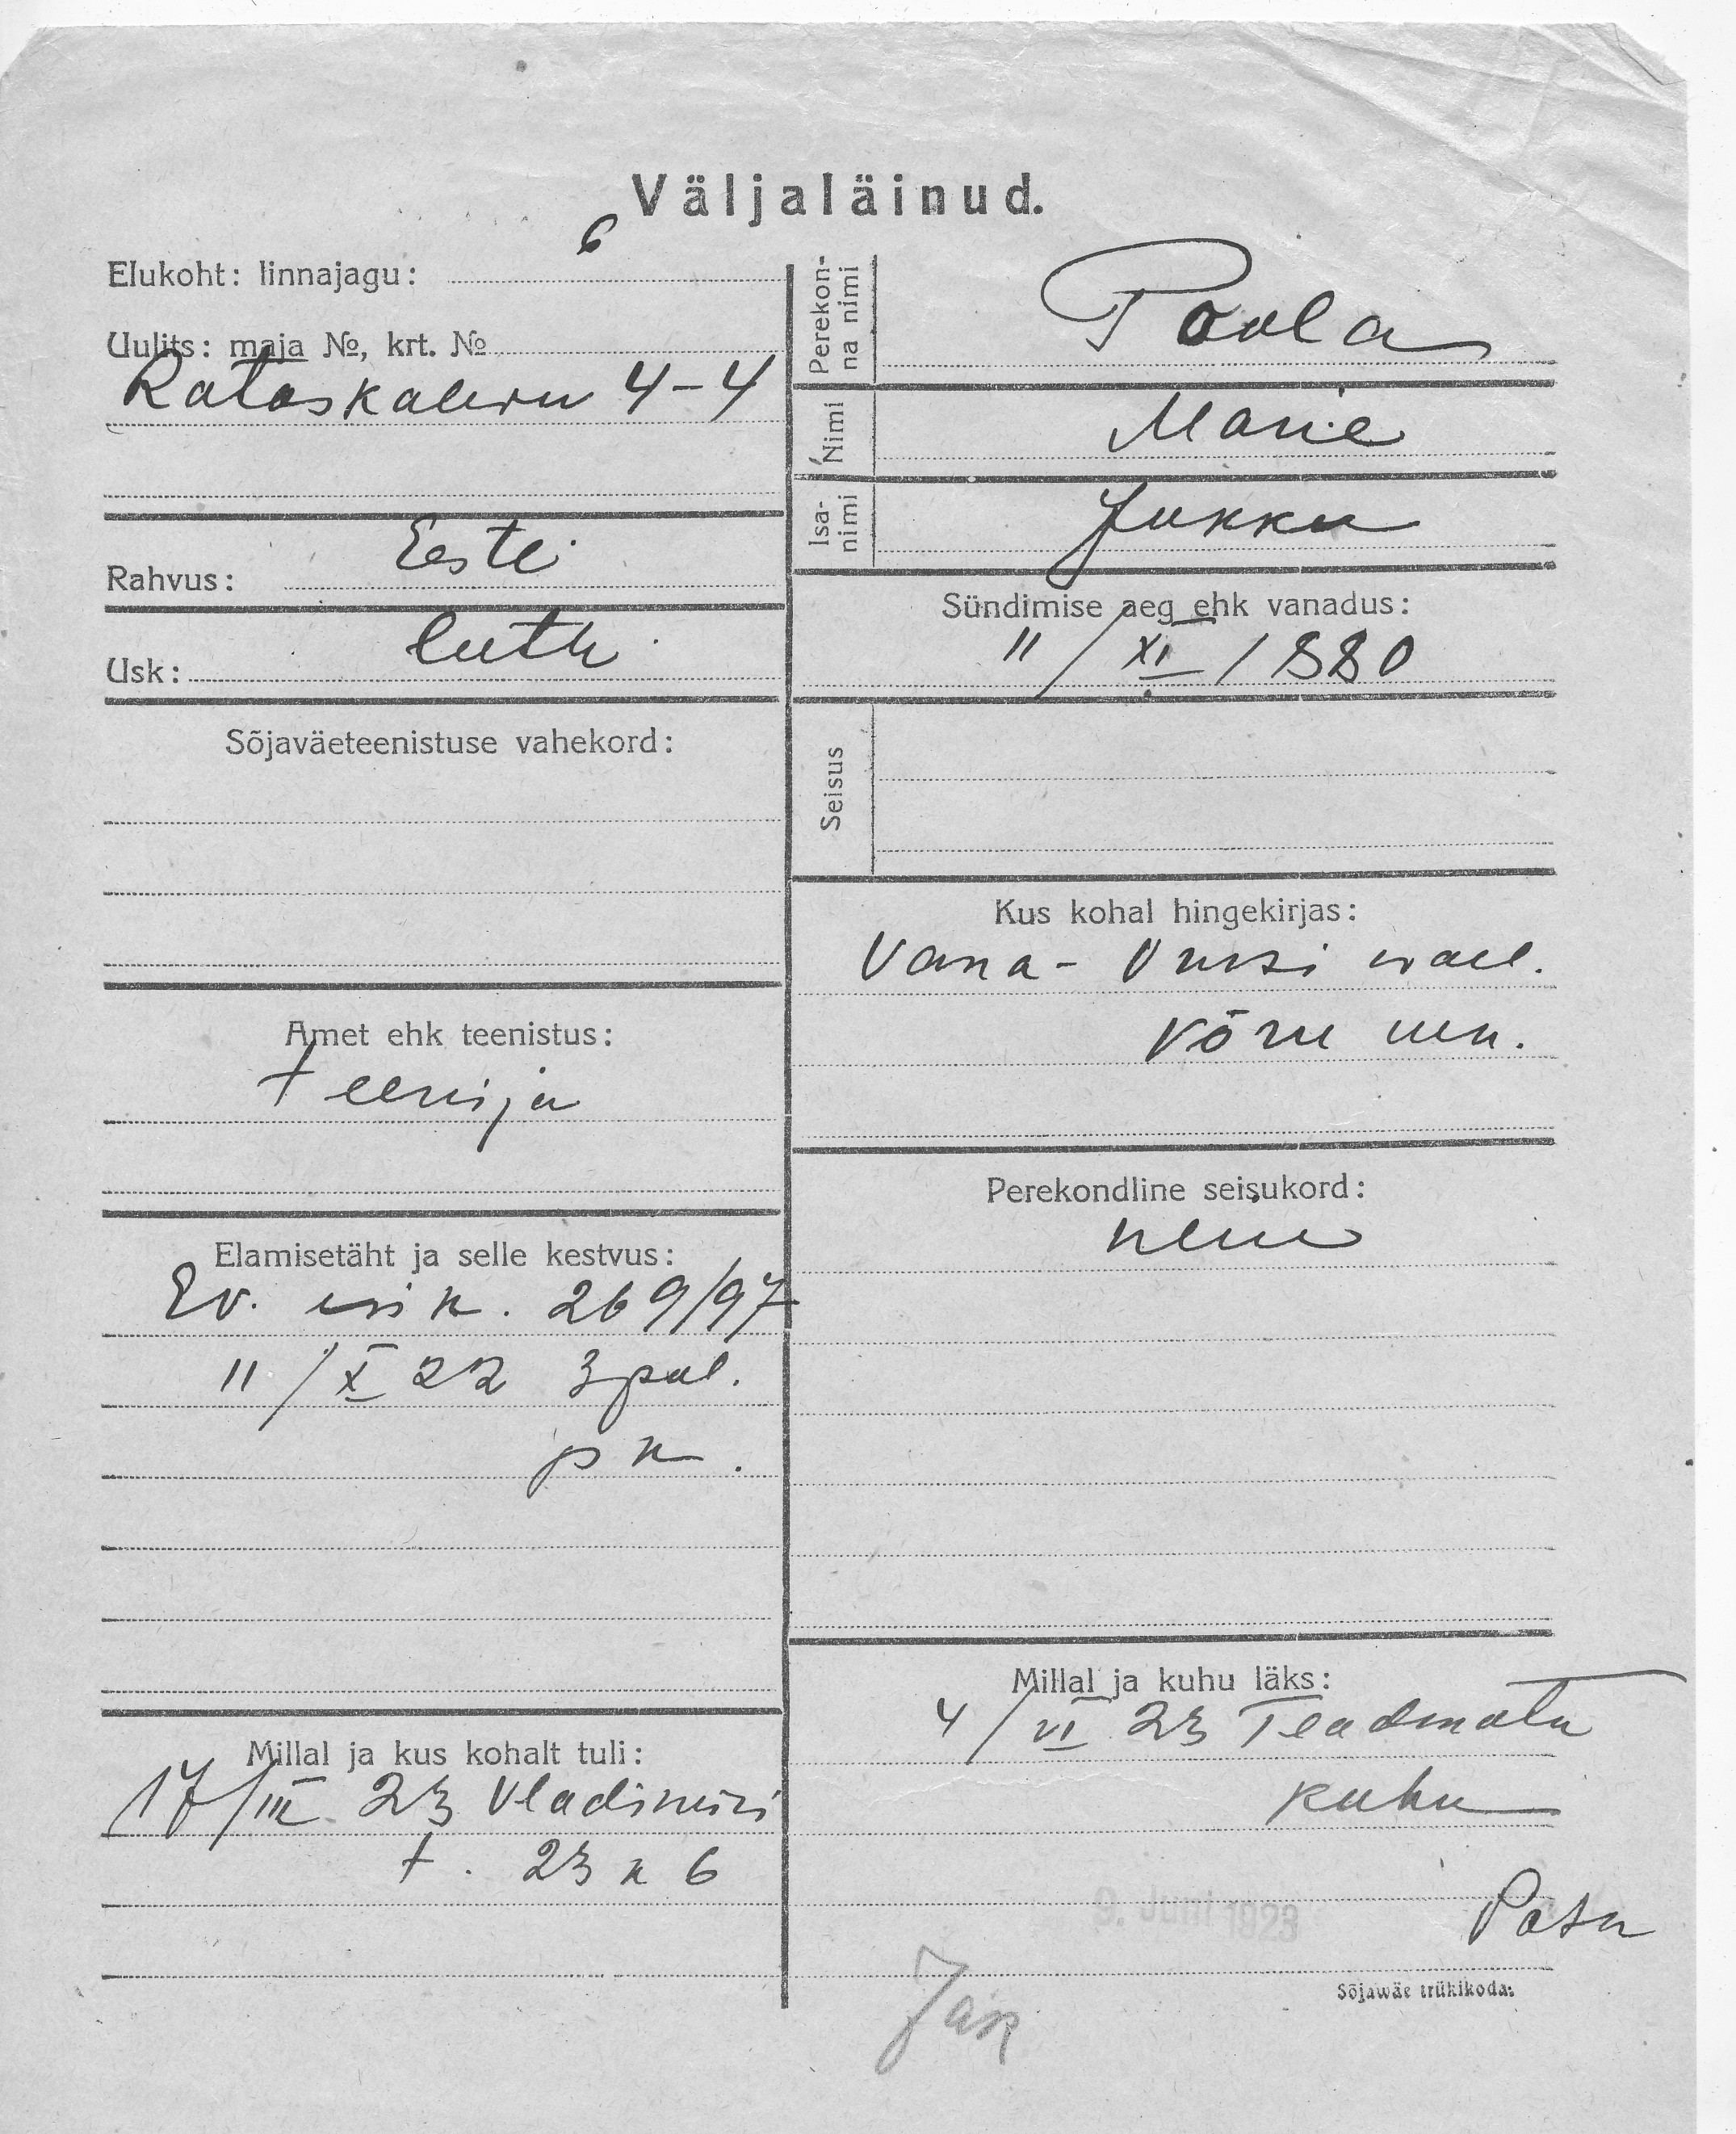 Väljaläinud.
6
Elukoht: linnajagu:
Uulits: maja №, krt. №
Rataskaevu 4-4
Rahvus: Eesti
Usk: luth
Sõjaväeteenistuse vahekord:
Amet ehk teenistus:
teenija
Elamisetäht ja selle kestvus:
Ev. isik. 269/97
11/X 22 3 pol.
Millal ja kus kohalt tuli:
17/III 23 Vladimiri
t. 23 k 6
Perekonna nimi
Poola
Nimi
Marie
Isanimi
Jukku
Sündimise aeg ehk vanadus:
11/XI 1880
Seisus
Kus kohal hingekirjas:
Vana-Vursi wall.
Võru mm.
Perekondline seisukord:
neiu
Millal ja kuhu läks:
4/VI 23 Teadmata
kuhu
9. Juni 1923
Sõjawäe trükikoda.
Jak